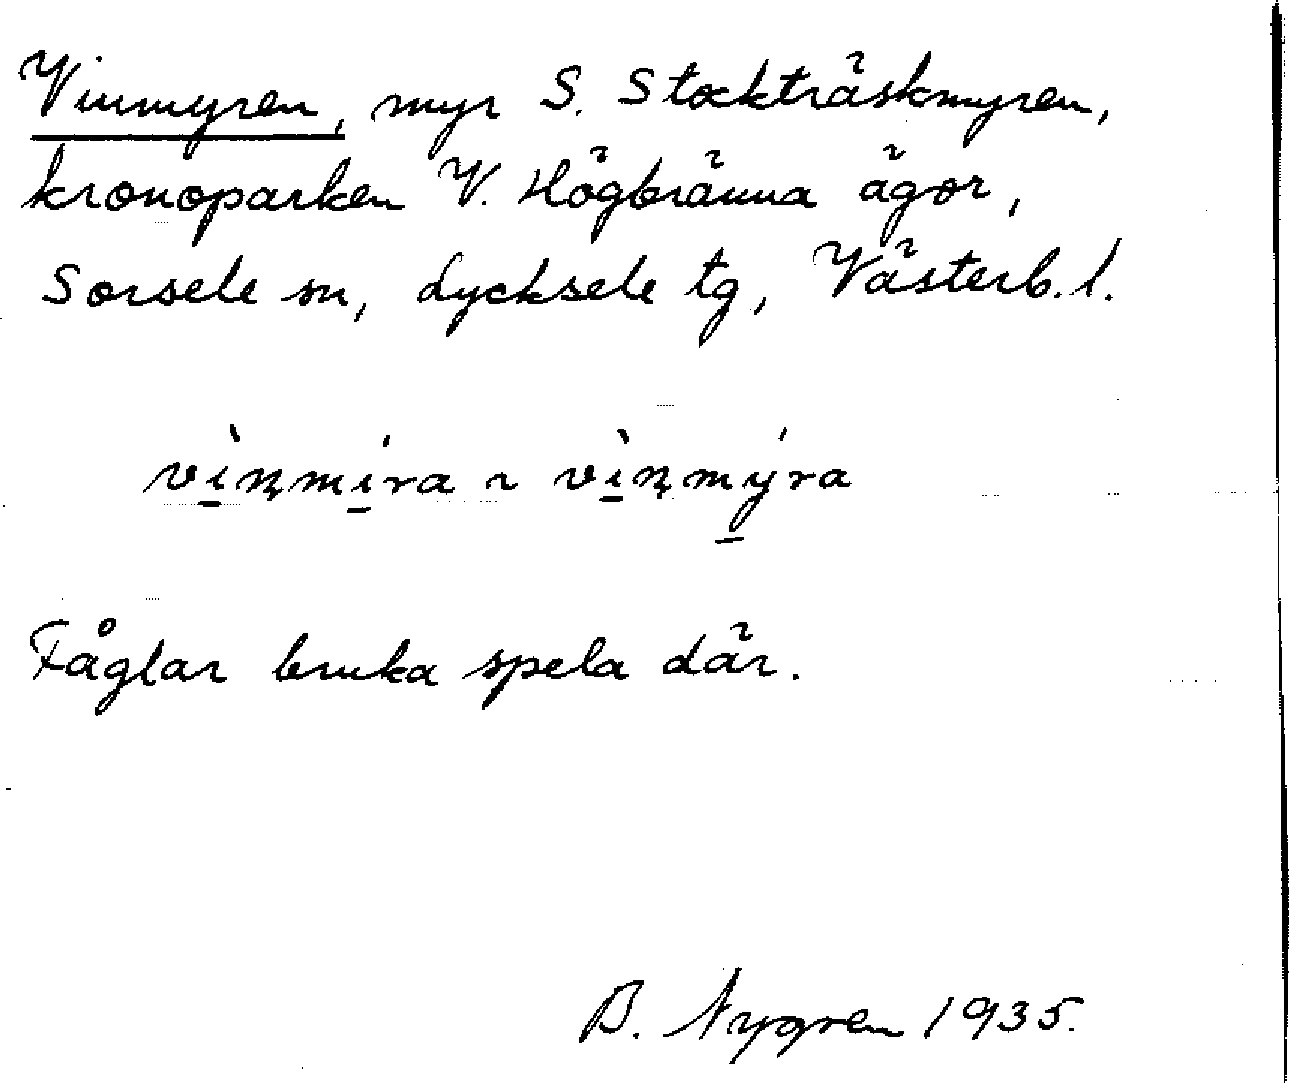 Vinmyren, myr S. Stockträskmyren,
kronoparken V. Högbränna ägor,
Sorsele sn, Lycksele tg, Västerb. l.
vìn̨míra ~ vìn̨mýra
Fåglar bruka spela där.
B. Nygren 1935.